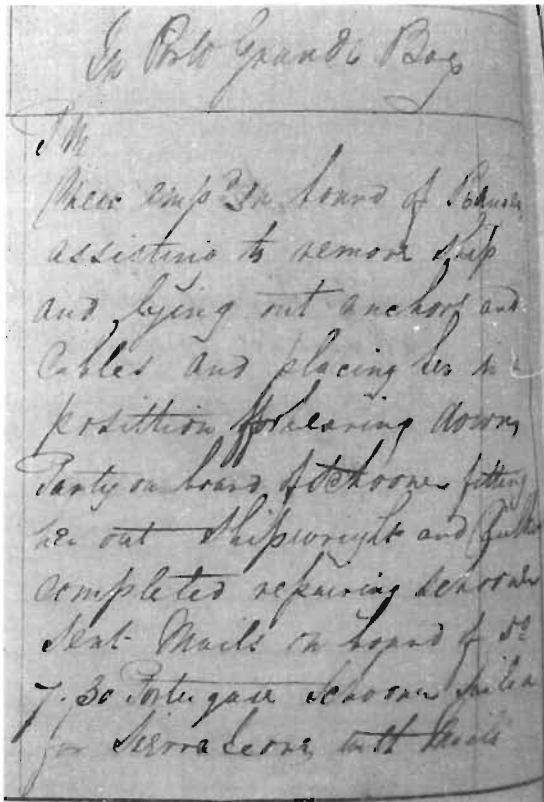 In Porto Grande Bay
PM
Crew emp.d on board of
assisting to remove ship
and lying out anchors and
Cables and placing her in
posittion for heaving down
Party on board of schooner fitting
her out Shipwright and
completed repairing schooner
Sent Mails on board of do
7.30 Portuguese schooner sailed
for Sierra Leone with Mails